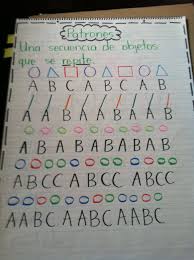 Patrones
Una secuencia de objetos
que se repite.
A B C A B C A B
A B A B A B A B
A B C C A B C C A B C C
A A B C A A B C A A B C